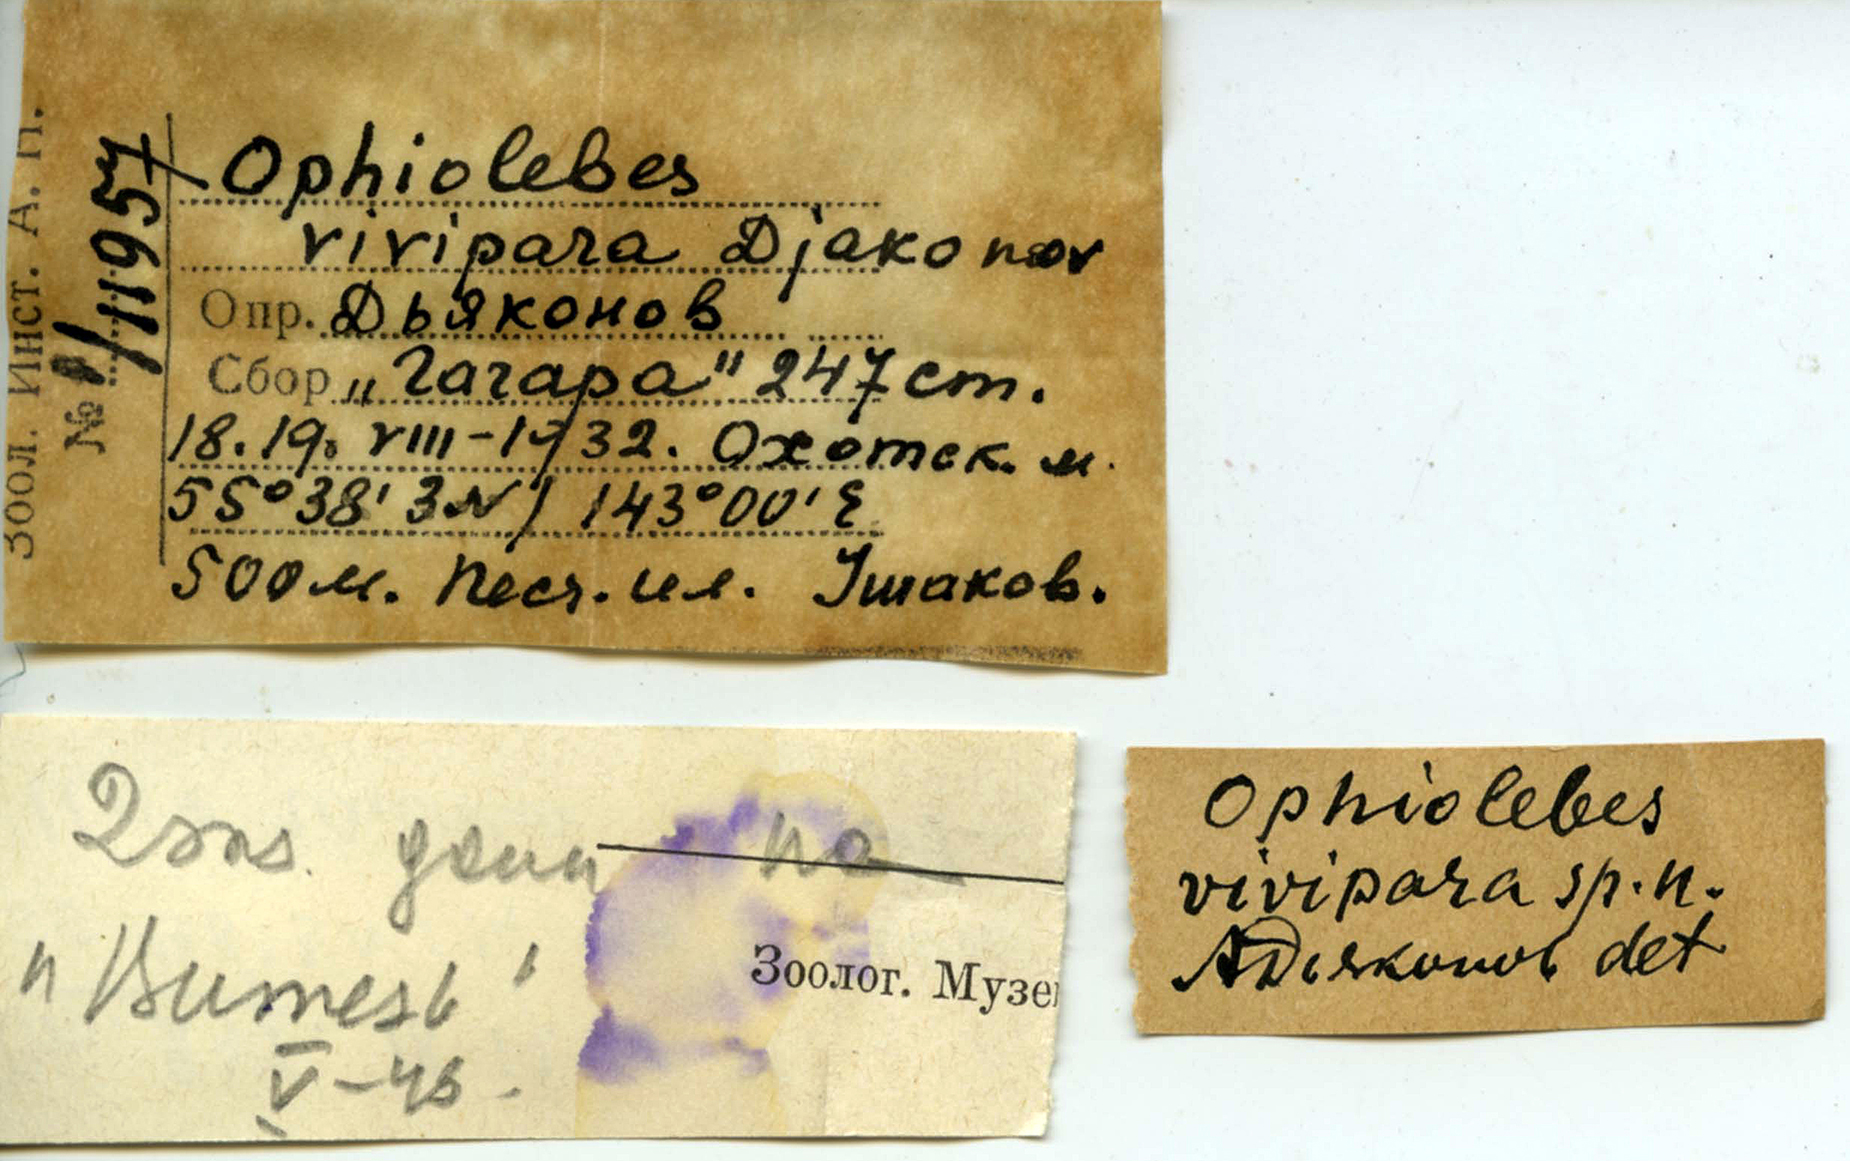 Зоол. Инст. А. Н.
№ 1/11957
Ophiolebes
vivipara Djakonov
Опр. Дьяконов
Сбор „Гагара" 247 ст.
18.19. VIII-1932. Охотск. м.
55°38'3 N / 143°00' E
500 м. песч. ил. Ушаков.
2 экз. даны на
"Витязь"
V-46.
Зоолог. Музе
Ophiolebes
vivipara sp. n.
A Diakonov det